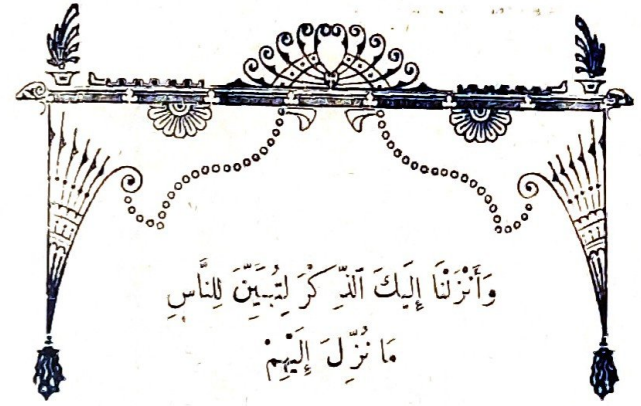 وَأَنْزَلْنَا إِلَيْكَ ٱلذِّكْرَ لِتُبَيِّنَ لِلنَّاسِ
مَا نُزِّلَ إِلَيْهِمْ